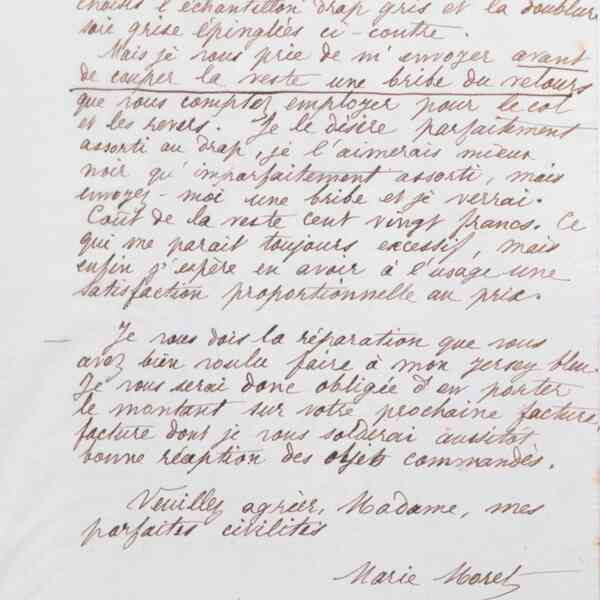 choisis l'échantillon drap gris et la doublure
soie grise épinglées ci-contre.
Mais je vous prie de m'envoyer avant
de couper la veste une bribe du velours
que vous comptez employer pour le col
et les revers. Je le désire parfaitement
assorti au drap, je l'aimerais mieux
noir qu'imparfaitement assorti, mais
envoyez-moi une bribe et je verrai.
Coût de la veste cent vingt francs. Ce
qui me parait toujours excessif, mais
enfin j'espère en avoir à l'usage une
satisfaction proportionnelle au prix.
Je vous dois la réparation que vous
avez bien voulu faire à mon jersey bleu.
Je vous serai donc obligée d'en porter
le montant sur votre prochaine facture,
facture dont je vous solderai aussitôt
bonne réception des objets commandés.
Veuillez agréer, Madame, mes
parfaites civilités
Marie Moret